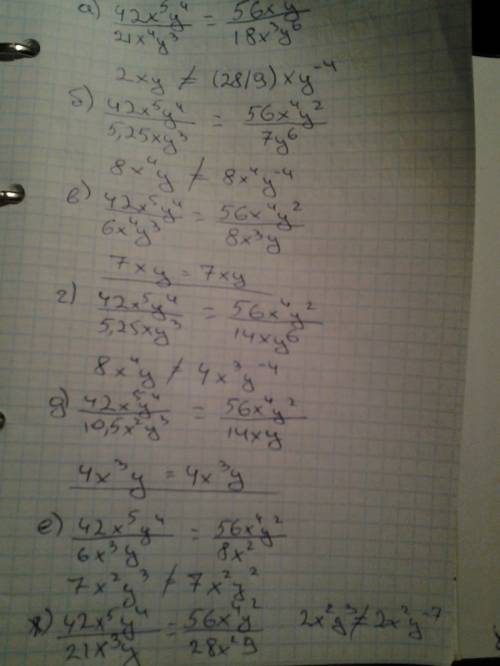 а) 42x⁵y⁴/21x⁴y³ = 56x⁴y²/18x³y⁶
2xy ≠ (28/9)xy⁻⁴
б) 42x⁵y⁴/5,25xy³ = 56x⁴y²/7y⁶
8x⁴y ≠ 8x⁴y⁻⁴
в) 42x⁵y⁴/6x⁴y³ = 56x⁴y²/8x³y
7xy = 7xy
г) 42x⁵y⁴/5,25xy³ = 56x⁴y²/14xy⁶
8x⁴y ≠ 4x³y⁻⁴
д) 42x⁵y⁴/10,5x²y³ = 56x⁴y²/14xy
4x³y = 4x³y
е) 42x⁵y⁴/6x³y = 56x⁴y²/8x²
7x²y³ ≠ 7x²y²
ж) 42x⁵y⁴/21x³y = 56x⁴y²/28x²9 2x²y³ ≠ 2x²y⁻⁷